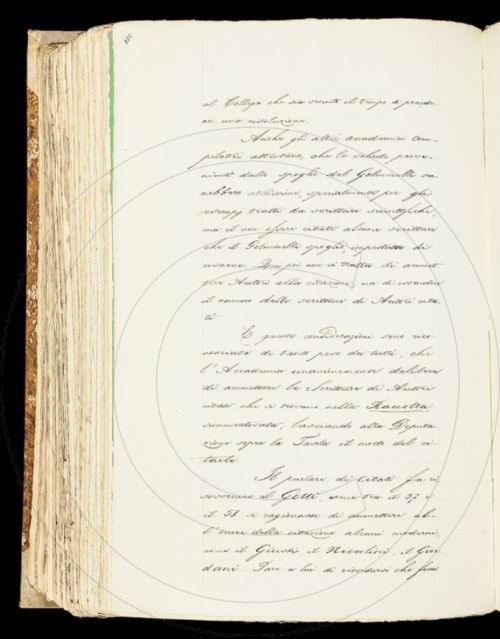 al Collega che sia venuto il tempo di prende-
re una risoluzione.
Anche gli altri accademici com-
pilatori attestano, che le schede prove-
nienti dallo spoglio del Gelminelli sa-
rebbero utilissime, specialmente per gli
esempj tratti da scritture scientifiche,
ma il non essere citate alcune scritture
che il spogliò impedisce di
usarne. poi non si tratta di ammet-
ter Autori alla citazione, ma di
il numero delle scritture di Autori cita-
ti.
E queste considerazioni sono rico-
nosciute di tanto peso da tutti, che
l'Accademia unanimemente delibera
di ammettere le Scritture di Autori
citati che si trovano nella Raccolta
summentovata, lasciando alla Deputa-
zione sopra la Tavola il modo del ci-
tarle.
Il parlare di Citati fa ri
sovvenire al Gotti, come tra il 57 e
il 58 si ragionasse di ammettere al-
l'onore della citazione alcuni moderni,
come il Giusti, il Niccolini, il Gior-
dani. Pare a lui di ricordarsi che fu